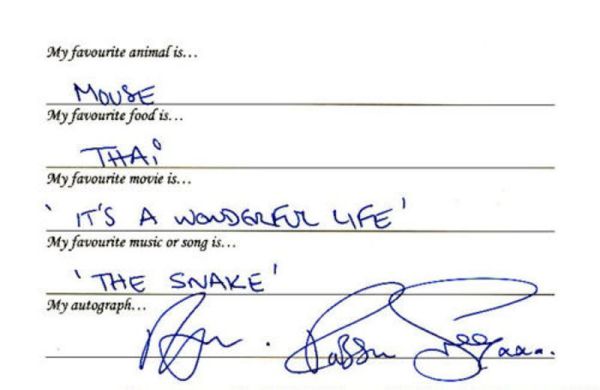 My favourite animal is...
MOUSE
My favourite food is...
THAi
My favourite movie is...
'IT'S A WONDERFUL LIFE'
My favourite music or song is...
'THE SNAKE'
My autograph...